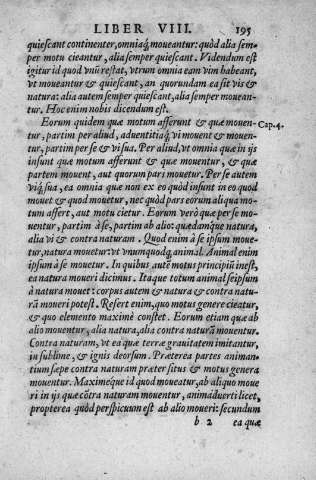 LIBER VIII. 195
quiescant continenter, omniaq́; moueantur: quòd alia sem-
per motu cieantur, alia semper quiescant. Videndum est
igitur id quod vnū restat, vtrum omnia eam vim habeant,
vt moueantur & quiescant, an quorundam ea sit vis &
natura: alia autem semper quiescant, alia semper mouean-
tur. Hoc enim nobis dicendum est.
Eorum quidem quæ motum afferunt & quæ mouen- Cap.4.
tur, partim per aliud, aduentitiaq́; vi mouent & mouen-
tur, partim per se & vi sua. Per aliud, vt omnia quæ in ijs
insunt quæ motum afferunt & quæ mouentur, & quæ
partem mouent, aut quorum pars mouetur. Per se autem
viq́; sua, ea omnia quæ non ex eo quòd insunt in eo quod
mouet & quod mouetur, nec quòd pars eorum aliqua mo-
tum affert, aut motu cietur. Eorum verò quæ per se mo-
uentur, partim à se, partim ab alio: quædamq́ue natura,
alia vi & contra naturam. Quod enim à se ipsum moue-
tur, natura mouetur: vt vnumquodq; animal. Animal enim
ipsum à se mouetur. In quibus autē motus principiū inest,
ea natura moueri dicimus. Itaque totum animal seipsum
à natura mouet: corpus autem & natura & contra natu-
rā moueri potest. Refert enim, quo motus genere cieatur,
& quo elemento maximè constet. Eorum etiam quæ ab
alio mouentur, alia natura, alia contra naturā mouentur.
Contra naturam, vt ea quæ terræ grauitatem imitantur,
in sublime, & ignis deorsum. Præterea partes animan-
tium sæpe contra naturam præter situs & motus genera
mouentur. Maximeq́ue id quod moueatur, ab aliquo moue
ri in ijs quæ cōtra naturam mouentur, animaduerti licet,
propterea quòd perspicuum est ab alio moueri: secundum
b 2 ea quæ